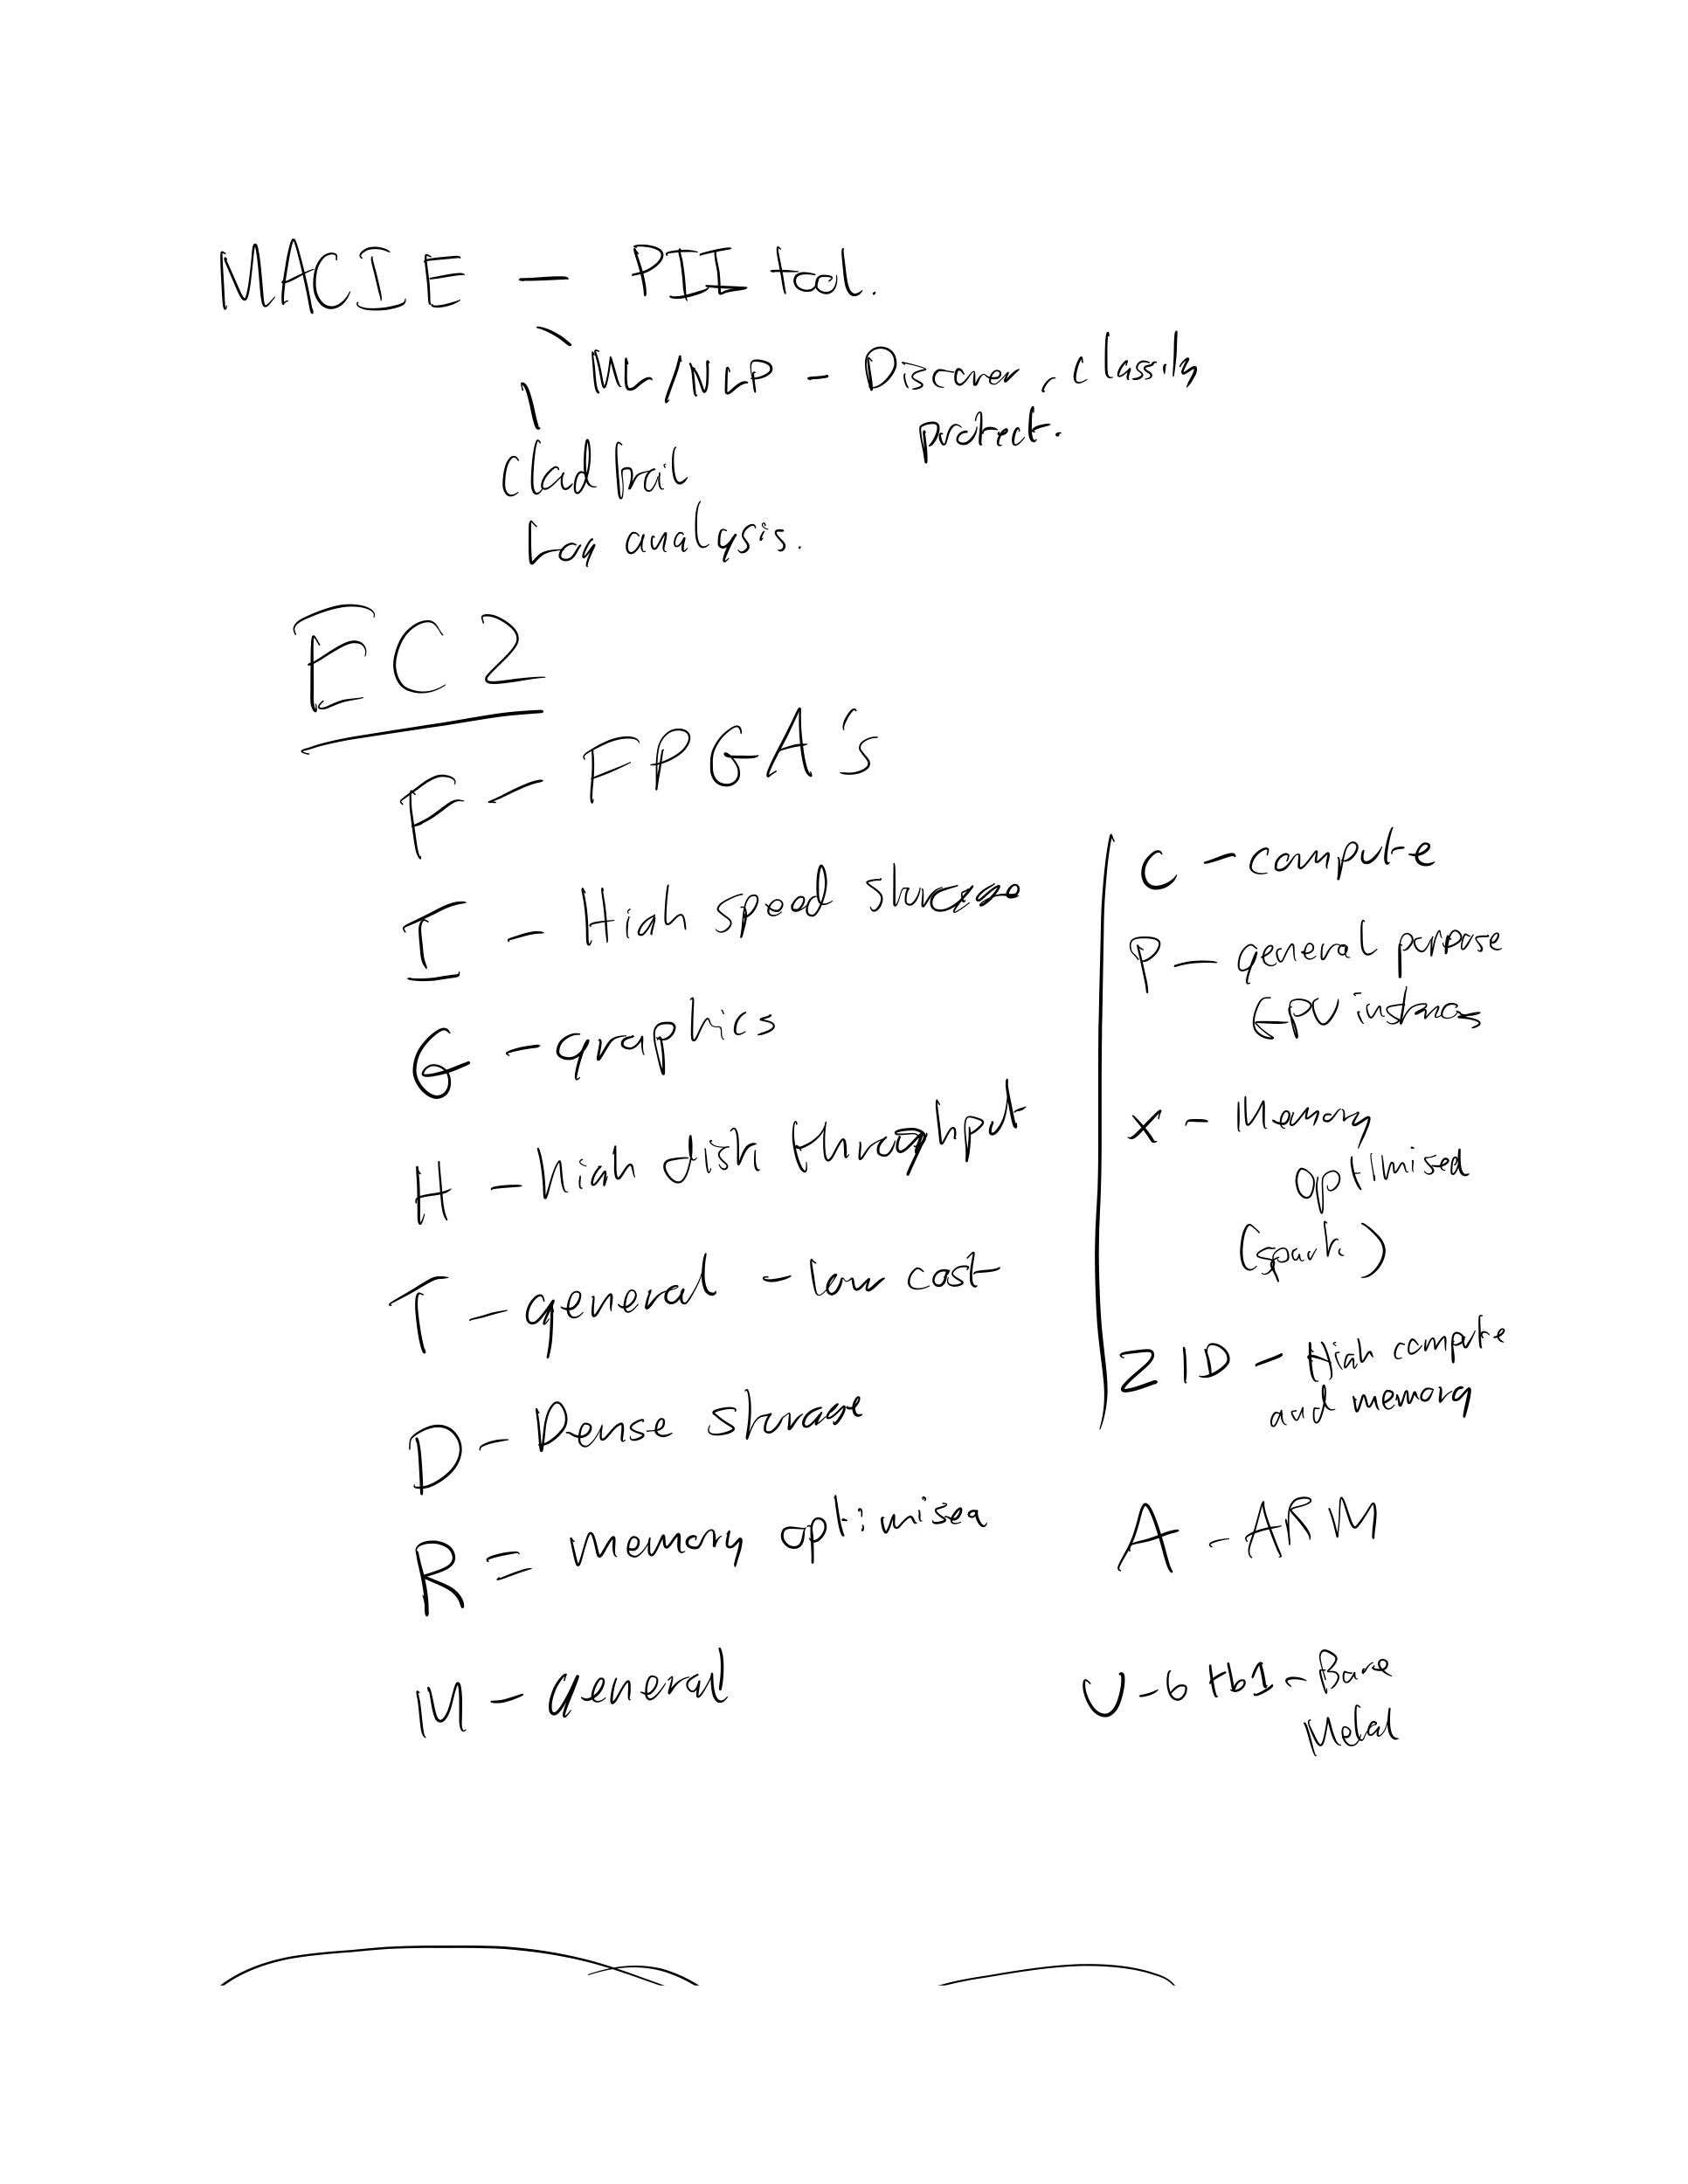 MACIE - PII tool.
ML/NLP - Discover, classify
protect.
Cloud trail
Log analysis.
EC2
F - FPGA's
I - High speed storage
G - graphics
H - high disk throughput
T - general - low cost
D - Dense storage
R = memory optimised
M - general
C - compute
P - general purpose
GPU instances
X - Memory
optimised
(spark)
Z1D - High compute
and memory
A - ARM
U-6tb1 - Bare
Metal